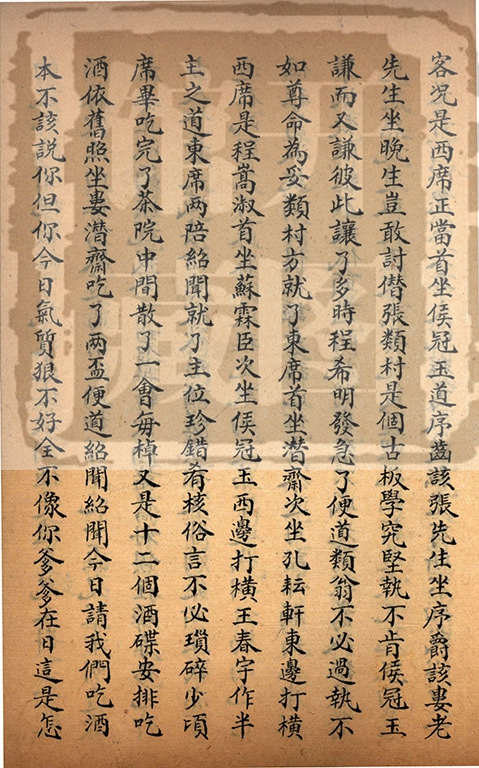 客况是西席正當首坐侯冠玉道序齒該張先生坐序爵該婁老
先生坐晚生豈敢討僭張類村是個古板學究堅執不肯侯冠玉
謙而又謙彼此讓了多時程希明發急了便道類翁不必過執不
如尊命為妥類村方就了東席首坐潛齋次坐孔耘軒東邊打橫
西席是程嵩淑首坐蘇霖臣次坐侯冠玉西邊打橫王春宇作半
主之道東席两陪紹聞就了主位珍錯肴核俗言不必瑣碎少頃
席畢吃完了茶院中間散了一會每棹又是十二個酒碟安排吃
酒依舊照坐婁潛齋吃了两盃便道紹聞紹聞今日請我們吃酒
本不該説你但你今日氣質狠不好全不像你爹爹在日這是怎